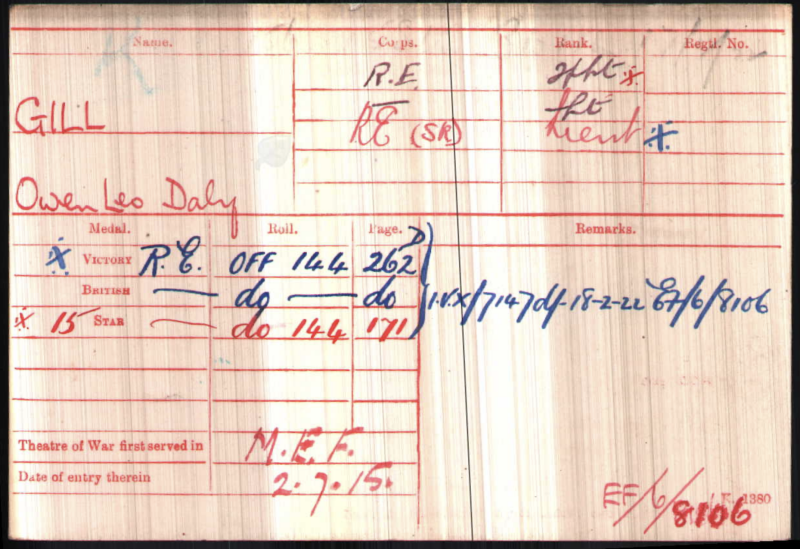 Name. Corps. Rank. Regtl. No.
R.E.
GILL RE (SR) Lieut *
Owen Leo Daly
Medal. Roll. Page. Remarks.
* VICTORY R.E. OFF 144 262 D
BRITISH — do — do I.V.X/7147 df-18-2-22 EF/6/8106
* 15 STAR — do 144 171
Theatre of War first served in M.E.F.
Date of entry therein 2.7.15.
EF/6/8106 K. 1380